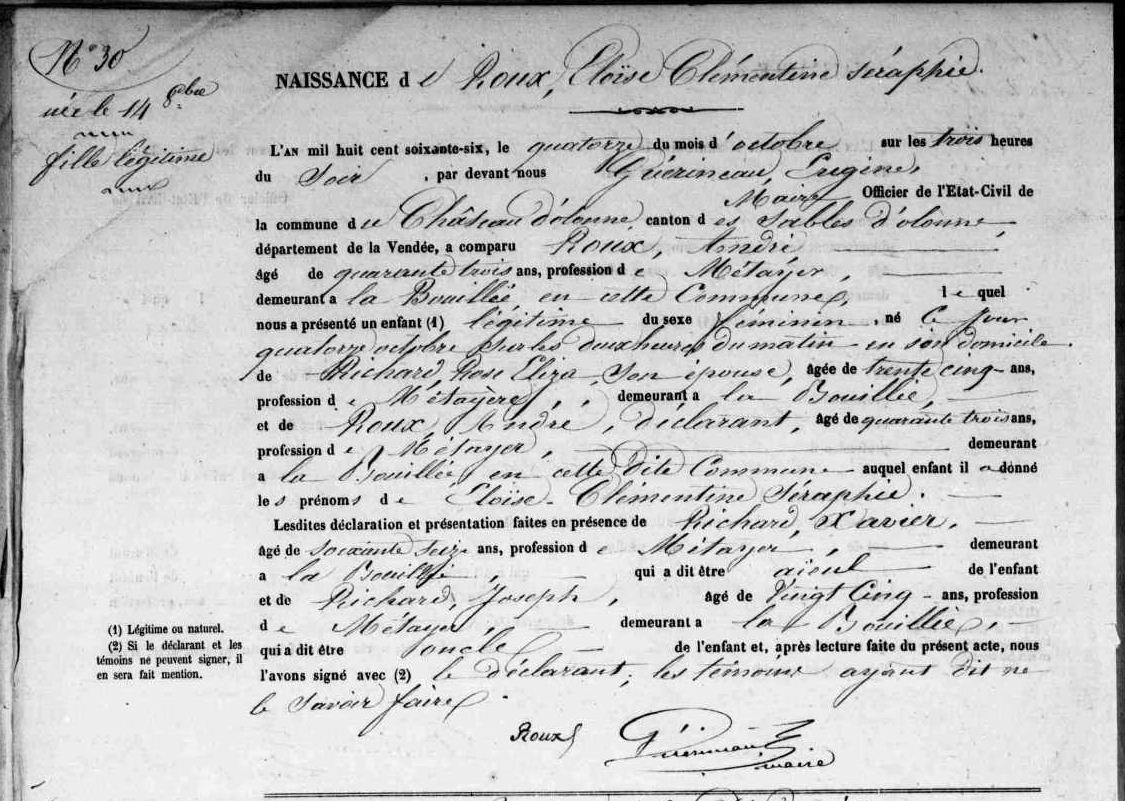 N° 30
née le 14 8bre
fille légitime
NAISSANCE de Roux, Eloïse Clémentine Séraphie.
L'AN mil huit cent soixante-six, le quatorze du mois d'octobre sur les trois heures
du Soir, par devant nous Guérineau, Eugène,
Maire Officier de l'Etat-Civil de
la commune du Château d'olonne, canton des Sables d'olonne,
département de la Vendée, a comparu Roux, André
âgé de quarante trois ans, profession de Métayer,
demeurant a la Bouillée en cette Commune, lequel
nous a présenté un enfant (1) légitime du sexe féminin, né Ce jour
quatorze octobre sur les deux heures du matin en son domicile
de Richard, Rose Eliza, Son épouse, âgée de trente cinq ans,
profession de Métayère, demeurant a la Bouillée,
et de Roux, André, déclarant, âgé de quarante trois ans,
profession de Métayer, demeurant
a la Bouillée, en cette dite Commune auquel enfant il a donné
les prénoms de Eloïse Clémentine Séraphie.
Lesdites déclaration et présentation faites en présence de Richard, Xavier,
âgé de soixante seize ans, profession de Métayer, demeurant
a la Bouillée, qui a dit être aïeul de l'enfant
et de Richard, Joseph, âgé de Vingt Cinq ans, profession
de Métayer, demeurant a la Bouillée,
qui a dit être l'oncle de l'enfant et, après lecture faite du présent acte, nous
l'avons signé avec (2) le déclarant; les témoins ayant dit ne
le Savoir faire.
(1) Légitime ou naturel.
(2) Si le déclarant et les
témoins ne peuvent signer, il
en sera fait mention.
Roux
Guérineau
maire